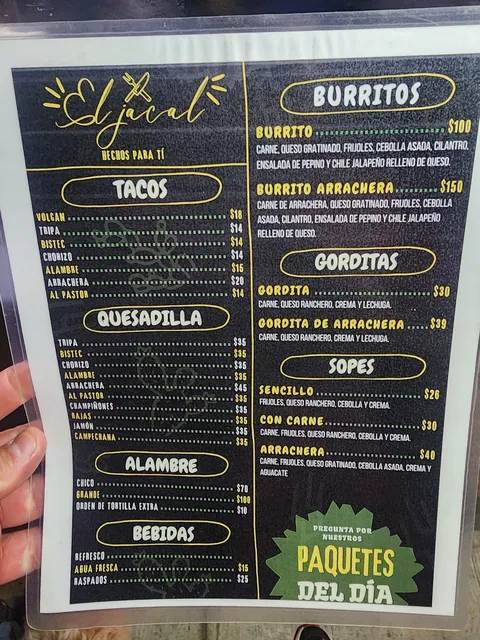 El jacal
HECHOS PARA TÍ
TACOS
VOLCAN $18
TRIPA $14
BISTEC $14
CHORIZO $14
ALAMBRE $15
ARRACHERA $20
AL PASTOR $14
QUESADILLA
TRIPA $35
BISTEC $35
CHORIZO $35
ALAMBRE $35
ARRACHERA $45
AL PASTOR $35
CHAMPIÑONES $35
RAJAS $35
JAMÓN $35
CAMPECHANA $35
ALAMBRE
CHICO $70
GRANDE $100
ORDEN DE TORTILLA EXTRA $10
BEBIDAS
REFRESCO
AGUA FRESCA $15
RASPADOS $25
BURRITOS
BURRITO $100
CARNE, QUESO GRATINADO, FRIJOLES, CEBOLLA ASADA, CILANTRO,
ENSALADA DE PEPINO Y CHILE JALAPEÑO RELLENO DE QUESO.
BURRITO ARRACHERA $150
CARNE DE ARRACHERA, QUESO GRATINADO, FRIJOLES, CEBOLLA
ASADA, CILANTRO, ENSALADA DE PEPINO Y CHILE JALAPEÑO
RELLENO DE QUESO.
GORDITAS
GORDITA $30
CARNE, QUESO RANCHERO, CREMA Y LECHUGA.
GORDITA DE ARRACHERA $39
CARNE, QUESO RANCHERO, CREMA Y LECHUGA.
SOPES
SENCILLO $26
FRIJOLES, QUESO RANCHERO, CEBOLLA Y CREMA.
CON CARNE $30
CARNE, FRIJOLES, QUESO RANCHERO, CEBOLLA Y CREMA.
ARRACHERA $40
CARNE, FRIJOLES, QUESO GRATINADO, CEBOLLA ASADA, CREMA Y
AGUACATE
PREGUNTA POR
NUESTROS
PAQUETES
DEL DÍA